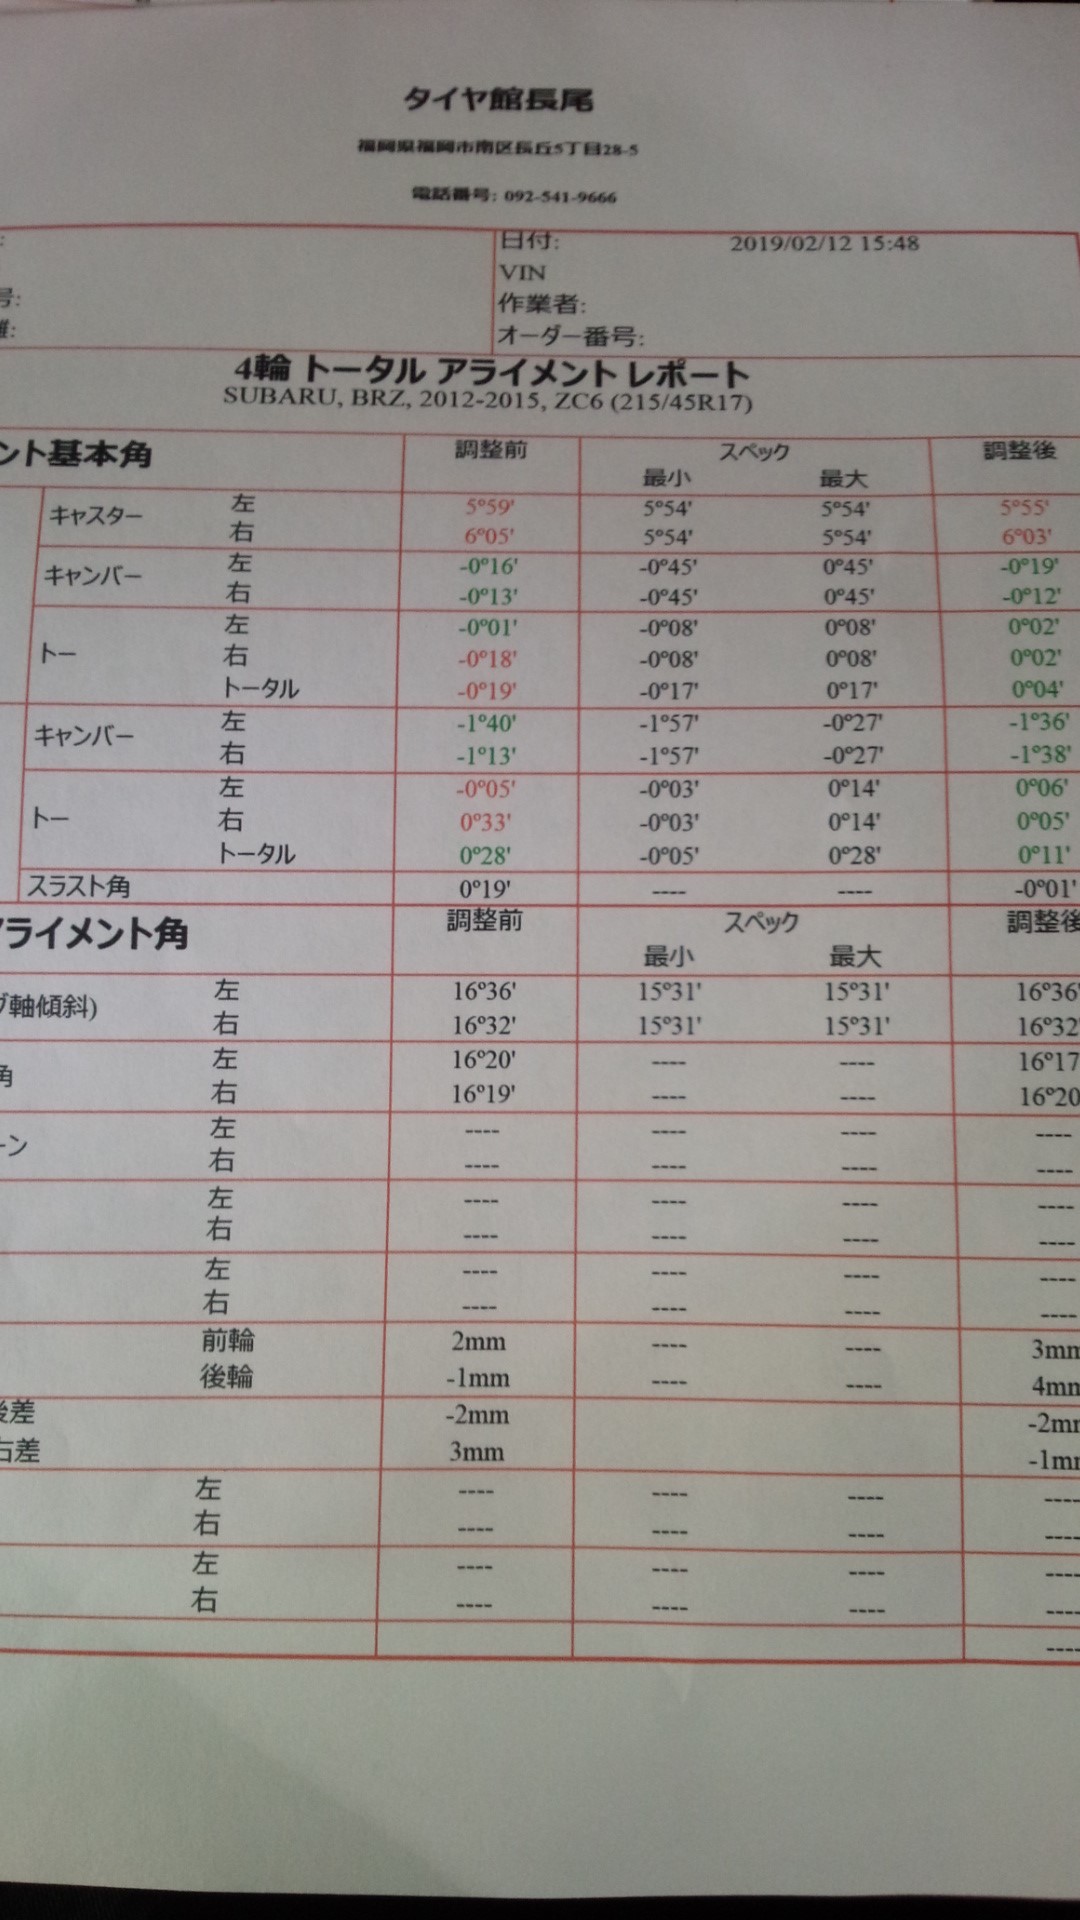 タイヤ館長尾
福岡県福岡市南区長丘5丁目28-5
電話番号: 092-541-9666
: 日付: 2019/02/12 15:48
VIN
号: 作業者:
離: オーダー番号:
4輪 トータル アライメント レポート
SUBARU, BRZ, 2012-2015, ZC6 (215/45R17)
ント基本角 調整前 スペック 調整後
最小 最大
キャスター 左 5º59' 5º54' 5º54' 5º55'
右 6º05' 5º54' 5º54' 6º03'
キャンバー 左 -0º16' -0º45' 0º45' -0º19'
右 -0º13' -0º45' 0º45' -0º12'
トー 左 -0º01' -0º08' 0º08' 0º02'
右 -0º18' -0º08' 0º08' 0º02'
トータル -0º19' -0º17' 0º17' 0º04'
キャンバー 左 -1º40' -1º57' -0º27' -1º36'
右 -1º13' -1º57' -0º27' -1º38'
トー 左 -0º05' -0º03' 0º14' 0º06'
右 0º33' -0º03' 0º14' 0º05'
トータル 0º28' -0º05' 0º28' 0º11'
スラスト角 0º19' ---- ---- -0º01'
アライメント角 調整前 スペック 調整後
最小 最大
グ軸傾斜) 左 16º36' 15º31' 15º31' 16º36'
右 16º32' 15º31' 15º31' 16º32
角 左 16º20' ---- ---- 16º17
右 16º19' ---- ---- 16º20
ーン 左 ---- ---- ---- ----
右 ---- ---- ---- ----
左 ---- ---- ---- ----
右 ---- ---- ---- ----
左 ---- ---- ---- ----
右 ---- ---- ---- ----
前輪 2mm ---- ---- 3mm
後輪 -1mm ---- ---- 4mm
後差 -2mm -2mm
右差 3mm -1mm
左 ---- ---- ---- ----
右 ---- ---- ---- ----
左 ---- ---- ---- ----
右 ---- ---- ---- ----
----